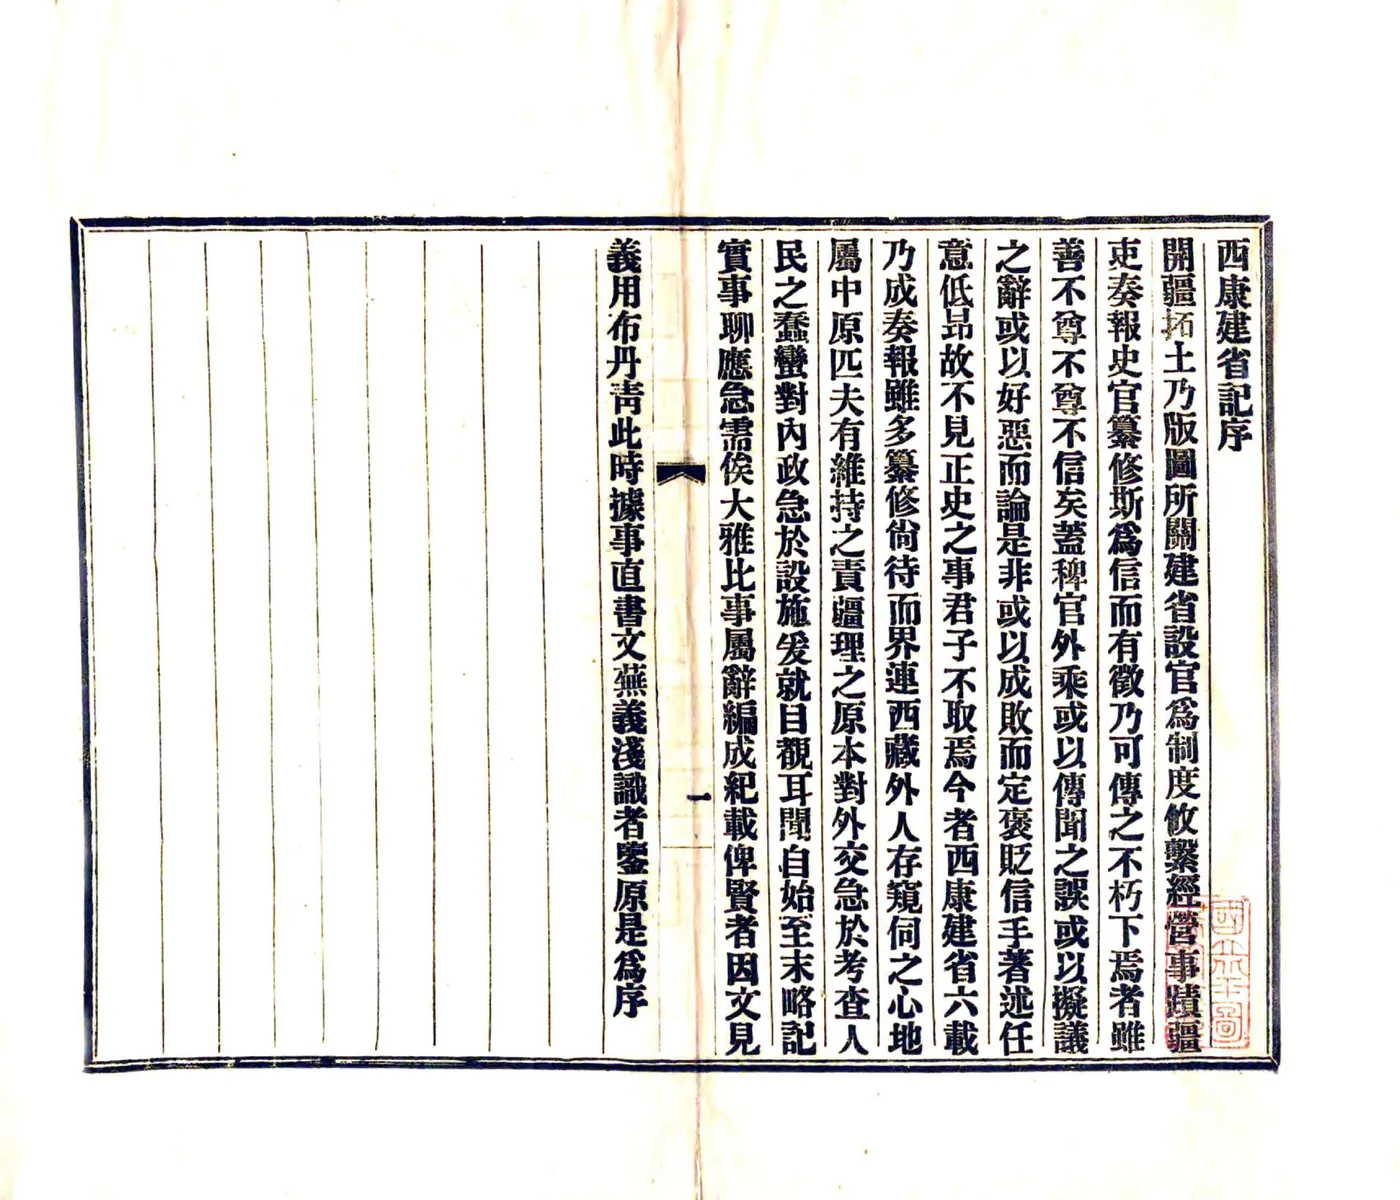 西康建省記序
開疆拓土乃版圖所關建省設官爲制度攸繫經營事蹟疆
吏奏報史官纂修斯爲信而有徵乃可傳之不朽下焉者雖
善不尊不尊不信矣蓋稗官外乘或以傳聞之誤或以擬議
之辭或以好惡而論是非或以成敗而定褒貶信手著述任
意低昂故不見正史之事君子不取焉今者西康建省六載
乃成奏報雖多纂修尚待而界連西藏外人存窺伺之心地
屬中原匹夫有維持之責疆理之原本對外交急於考查人
民之蠢蠻對內政急於設施爰就目覩耳聞自始至末略記
實事聊應急需俟大雅比事屬辭編成紀載俾賢者因文見
義用布丹靑此時據事直書文蕪義淺識者鑒原是爲序
一